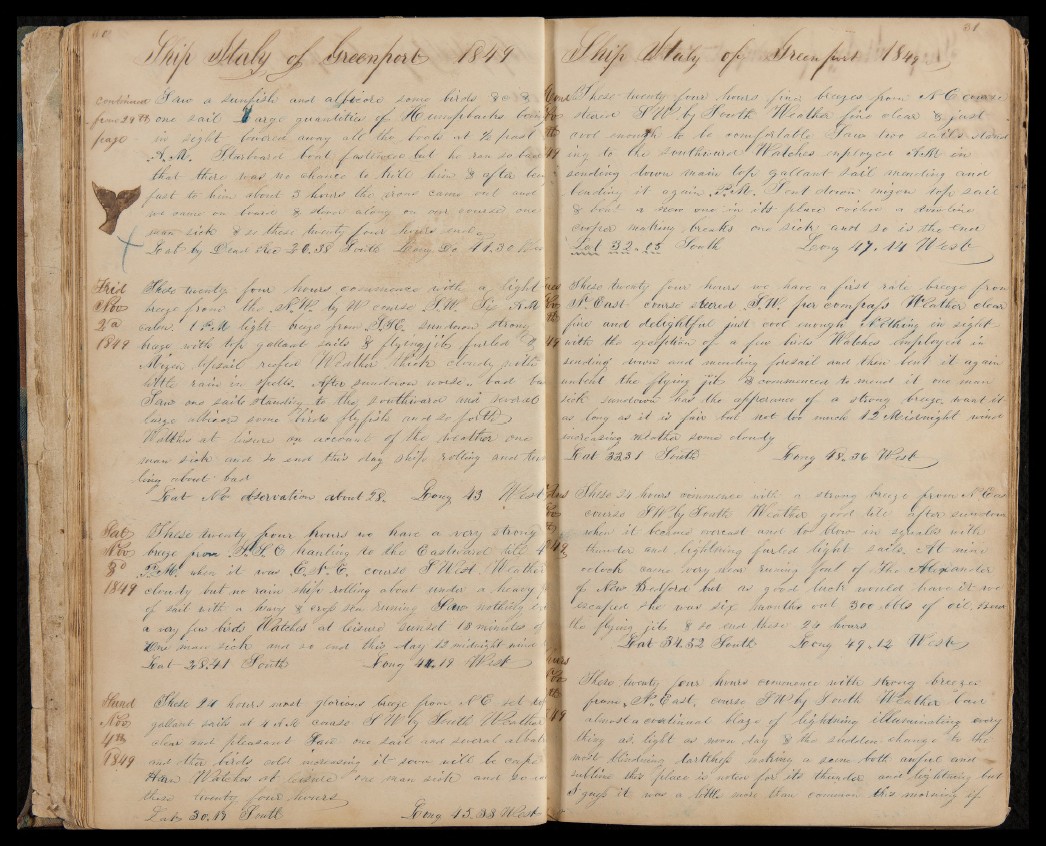 30
Ship Italy of Greenport 1849
continued Saw a sunfish and albicore some birds &c &
from 29th one sail Large quantities of Humpbacks
page in sight lowered away all the boats at ½ past
A.M. Starboard boat fastened but he ran so
that there was no chance to kill him & after
fast to him about 3 hours the irons came out and
we came on board & stood along on our course one
man sick & so these twenty four hours ends
Lat by Dead Rec 26.38 South Long Do 41.30
Frid These twenty four hours commence with a light
Nov breeze from the N.W. by W course S.W. A.M.
2d calm. 1 P.M light breeze from S.E. sundown strong
1849 breeze with top gallant sails & flying jib furled &
Mizen topsail reefed Weather thick cloudy with
little rain in spells. After sundown worse bad
Saw one sail standing to the southward and several
large albicore some birds flyfish and so forth
Watches at leisure on account of the weather one
man sick and so end this day ship rolling and
ling about bad
Lat No observation about 28. Long 43 West
Sat These twenty four hours we have a very strong
Nov breeze from hauling to the Eastward till 4
3d P.M. when it was E.N.E. course S West Weather
1849 cloudy but no rain ship rolling about under a heavy
of sail with a heavy & cross sea running Saw nothing
a very few birds Watches at leisure sunset 18 minutes
One man sick and so end this day 12 midnight wind
Lat 28.41 South Long 44.19 West
Sund These 24 hours most glorious breeze from N E set
Nov gallant sails at 4 A.M. course S W by South Weather
4th clear and pleasant Saw one sail and several
1849 and other birds colds increasing it soon will be cape
Horn Watches at leisure one man sick and so
these twenty four hours
Lat 30.19 South Long 45.38 West
31
Ship Italy of Greenport 1849
These twenty four hours fine breezes from N E course
steered S W. by South Weather fine clear & just
cool enough to be comfortable Saw two sails stand
ing to the southward Watches employed A.M. in
sending down main top gallant sail mending and
bending it again P.M. Sent down mizen top sail
& bent a new one in its place
cooper making breaks one sick and so is the end
Lat 32.05 South Long 47.14 West
These twenty four hours we have a first rate breeze from
N East course steered S.W. per compass Weather clear
fine and delightful just cool enough Nothing in sight
with the exception of a few birds Watches employed in
sending down and mending foresail and then bent it again
unbent the flying jib & commenced to mend it one man
sick sundown has the apperance of a strong breeze, want it
as long as it is fair but not too much 12 Midnight wind
increasing weather some cloudy
Lat 33 31 South Long 48.36 West
These 24 hours commence with a strong breeze from N East
course S W by South Weather good till after sundown
when it became overcast and to blow in squals with
thunder and lightning furled light sails. At nine
oclock came very near running foul of the Alexander
of New Bedford but as good luck would have it we
escaped She was six months out 300 bbls of oil.
the flying jib & so end these 24 hours
Lat 34.52 South Long 49.12 West
These twenty four hours commence with strong breezes
from N. East. course S W by South Weather bad
almost a continual blaze of lightning illuminating every
thing as light as noon day & the sudden change to the
most blinding darkness making a scene both awful and
sublime this place is noted for its thunder and lightning but
I guess it was a little more than common this morning if